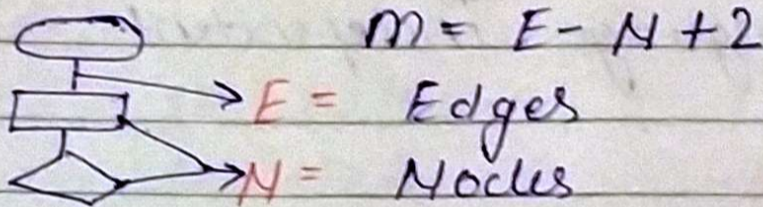 m = E - N + 2
E = Edges
N = Nodes